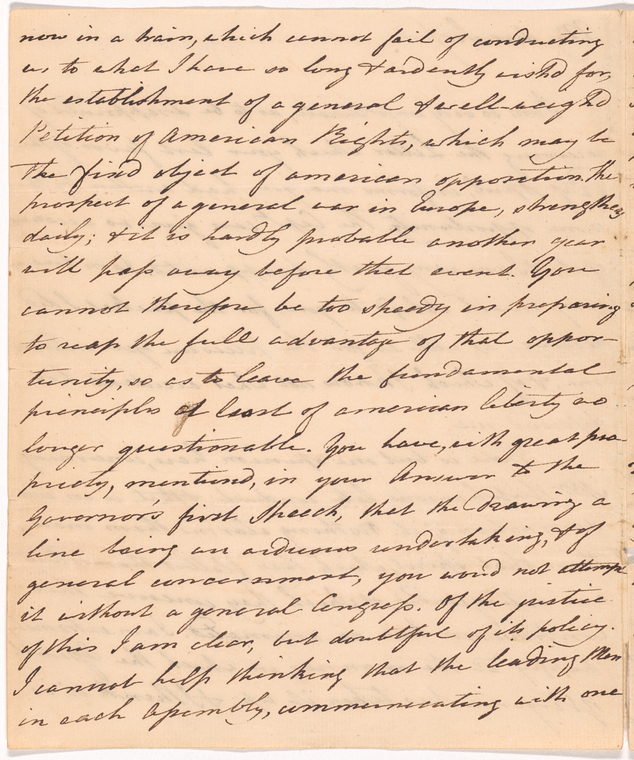 now in a train, which cannot fail of conducting
us to what I have so long & ardently wish'd for,
the establishment of a general & well-weigh'd
Petition of American Rights, which may be
the fix'd object of american opposition. The
prospect of a general war in Europe, strengthens
daily; & it is hardly probable another year
will pass away before that event. You
cannot therefore be too speedy in preparing
to reap the full advantage of that oppor-
tunity, so as to leave the fundamental
principles at least of american liberty no
longer questionable. You have, with great pro
priety, mention'd, in your Answer to the
Governor's first Speech, that the drawing a
line being an arduous undertaking, & of
general concernment, you would not attempt
it without a general Congress. Of the justice
of this I am clear, but doubtful of its policy.
I cannot help thinking that the leading Men
in each Assembly, communicating with one